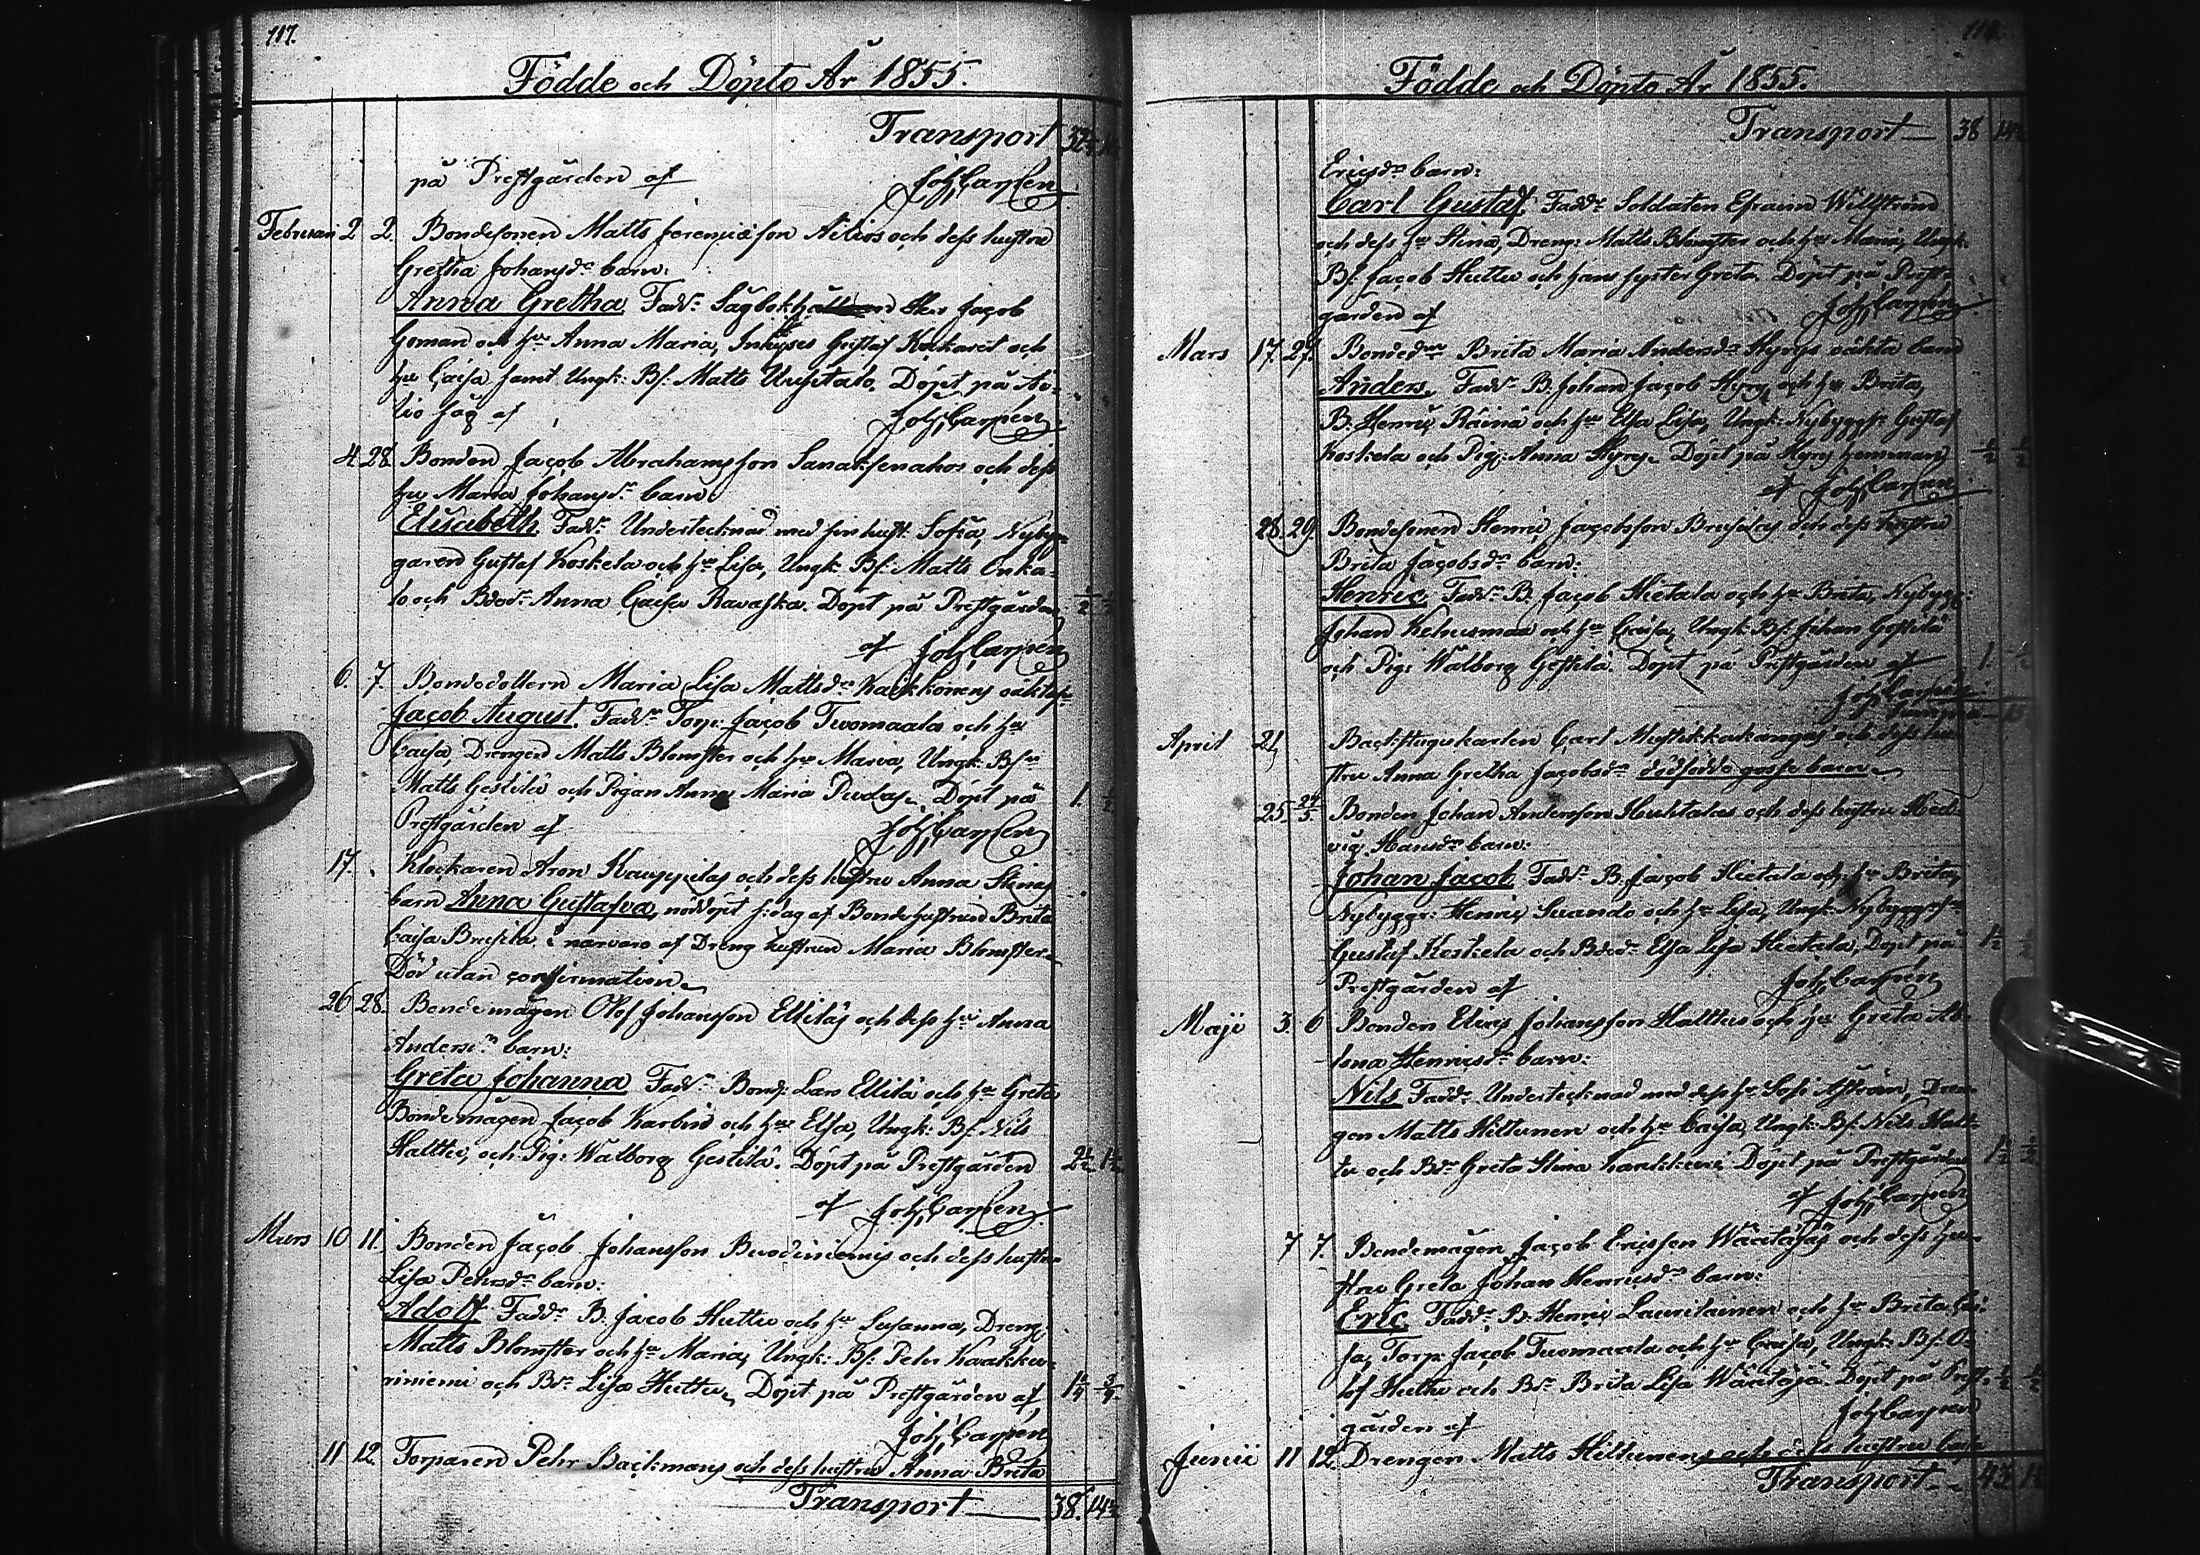 117.
Födde och Döpte År 1855.
Transport
på Prestgården af Joh, Carpen
Februari 2 2. Bondesonen Matts Jeremiæson Nilios och dess hustru
Gretha Johansdr barn:
Anna Gretha Faddr Jacob
Goman och hu Anna Maria, Inhyses Gustaf och
hu Caisa samt Ungk: Bs: Matts Uusitalo. Döpt på
såg af Joh, Carpen
4. 28. Bonden Jacob Abrahamsson Sanaksenahos och dess
hu Maria Johansdr barn:
Elisabeth Faddr Undertecknad med sin hust. Sofia, Nybyg-
garen Gustaf Koskela och hu Lisa, Ungk: Bs: Matts Onka-
lo och Bdodr Anna Caisa Ravaska. Döpt på Prestgården
af Joh, Carpen
6. 7. Bondedottern Maria Lisa Mattsdr Kaikkonens oäkta
Jacob August. Faddr Torp: Jacob Tuomaala och hu
Caisa, Drengen Matts Blomster och hu Maria, Ungk: Bs:
Matts Gestilä och Pigan Anna Maria Pudas. Döpt på
Prestgården af Joh, Carpen
17. Klockaren Aron Kauppilas och dess hustru Anna Stinas
barn Anna Gustafva, nöddöpt s: dag af Bondehustrun Brita
Caisa Brusila i närvaro af Dreng hustrun Maria Blomster
Död utan confirmation
26 28. Bondemågen Olof Johansson Elliläs och dess hu Anna
Andersdr barn:
Greta Johanna Faddr Bond: Lars Ellilä och hu Greta
Bondemågen Jacob Karbin och hu Elsa, Ungk: Bs: Nils
Halttu, och Pig: Walborg Gestilä. Döpt på Prestgården
af Joh, Carpen
Mars 10 11. Bonden Jacob Johansson och dess hustru
Lisa Pehrsdr barn:
Adolf Faddr B. Jacob Huttu och hu Susanna, Dreng:
Matts Blomster och hu Maria, Ungk: Bs: Pehr
niemi och Bdr Lisa Huttu, Döpt på Prestgården af
Joh, Carpen
11 12. Torparen Pehr Backmans och dess hustru Anna Brita
Transport 38. 14½
118.
Födde och Döpte År 1855.
Transport 38 14½
Ericsdr barn:
Carl Gustaf. Faddr Soldaten Efraim
och dess hu Stina, Dreng: Matts Blomster och hu Maria, Ungk:
Bs: Jacob Huttu och hans syster Greta. Döpt på Prest-
gården af Joh, Carpen
Mars 17. 27. Bondedr Brita Maria Andersdr Hyrys oäkta barn
Anders. Faddr B. Johan Jacob Hyry och hu Brita,
B. Henric Räinä och hu Elsa Lisa, Ungk: Nybyggs: Gustaf
Koskela och Pig: Anna Hyry. Döpt på Hyry hemman
af Joh, Carpen
28. 29. Bondesonen Henric Jacobsson Brusilas och dess hustru
Brita Jacobsdr barn:
Henric Faddr B. Jacob Hietala och hu Brita, Nybygg:
Johan Kehusmaa och hu Caisa, Ungk: Bs: Johan Gestilä
och Pig: Walborg Gestilä. Döpt på Prestgården af
Joh, Carpen
April 21 Backstugukarlen Carl Mustikkakangas och dess hu-
stru Anna Gretha Jacobsdr dödfödde gosse barn
25. 24/5 Bonden Johan Andersson Huhtalas och dess hustru Hed-
vig Hansdr barn:
Johan Jacob Faddr B. Jacob Hietala och hu Brita,
Nybyggr: Henric Suando och hu Lisa, Ungk: Nybyggs:
Gustaf Koskela och Bdodr Elsa Lisa Hietala, Döpt på
Prestgården af Joh, Carpen
Maji 3. 6 Bonden Elias Johansson Halttus och hu Greta
Henricsdr barn:
Nils Faddr Undertecknad med dess hu Sofi Aström, Dren-
gen Matts Hiltunen och hu Caisa, Ungk: Bs: Nils Halt-
tu och Bdr Greta Stina. Döpt på Prestgården
af Joh, Carpen
7 7. Bondemågen Jacob Ericsson Wäätäjäs och dess hu-
stru Greta Johan Henricsdr barn:
Eric Faddr B. Henric Laurilainen och hu Brita Cai-
sa, Torp: Jacob Tuomaala och hu Caisa, Ungk: Bs: O-
lof Huttu och Bdr Brita Lisa Wäätäjä. Döpt på Prest-
gården af Joh, Carpen
Junii 11 12. Drengen Matts Hiltunens och dess hustru
Transport 43